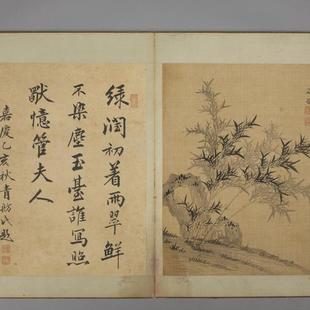 綠潤初着雨翠鮮
不染塵玉臺誰寫照
默憶管夫人
嘉慶乙亥秋青舫氏題